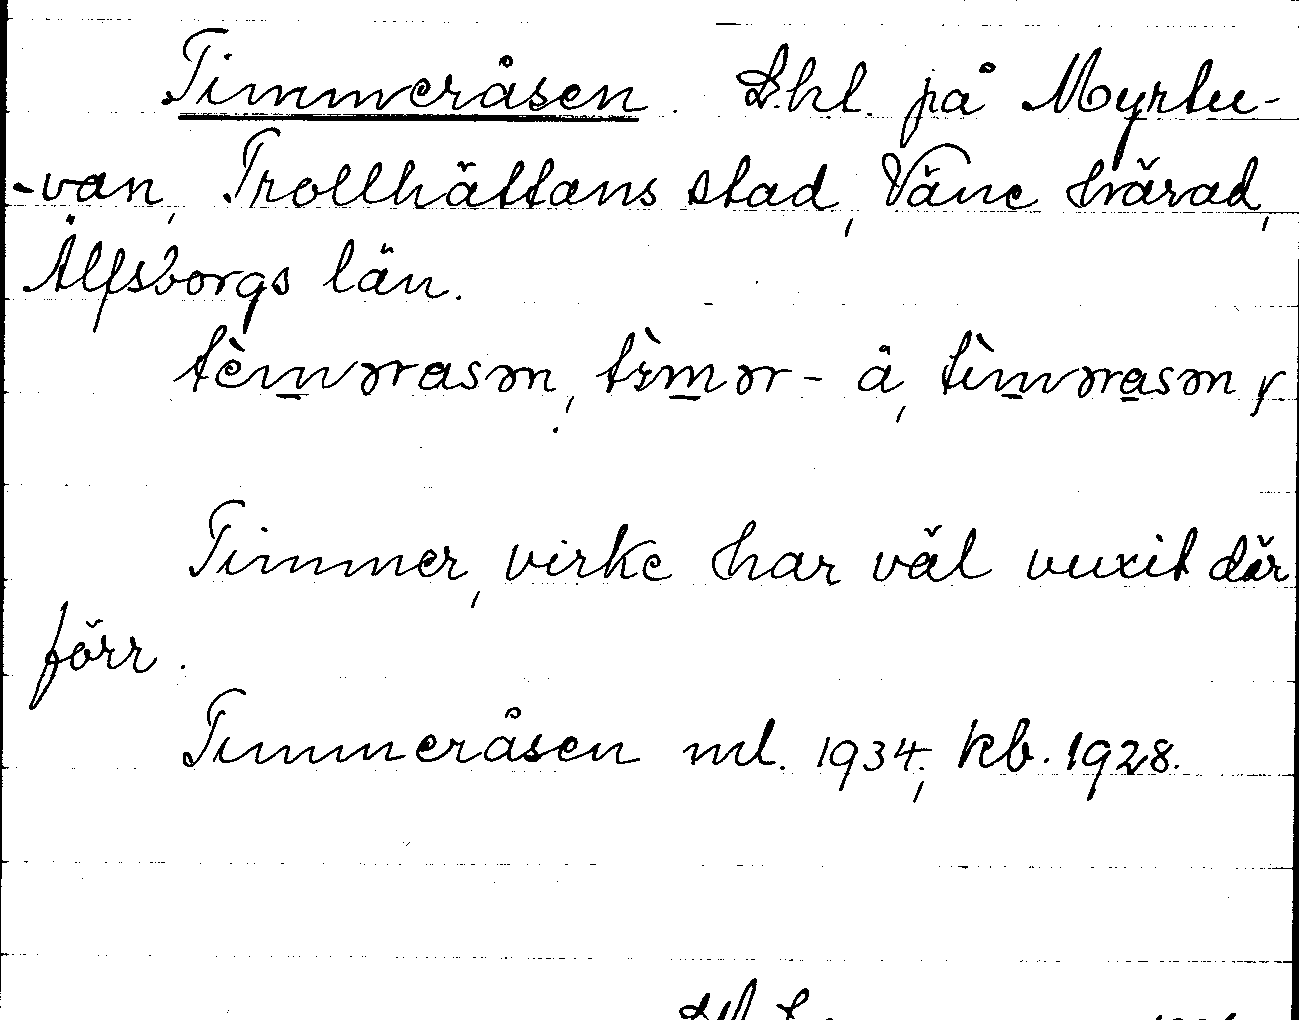 Timmeråsen. Lht. på Myrtu-
-van, Trollhättans stad, Väne härad,
Älfsborgs län.
tèmərasən, tìmər- å, tìmərasən
Timmer, virke har väl vuxit där
förr.
Timmeråsen ml. 1934; kb. 1928.